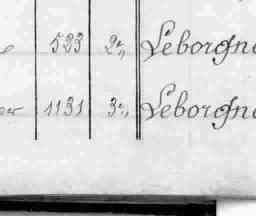 533 2e Leborgne
1131 3e Leborgne